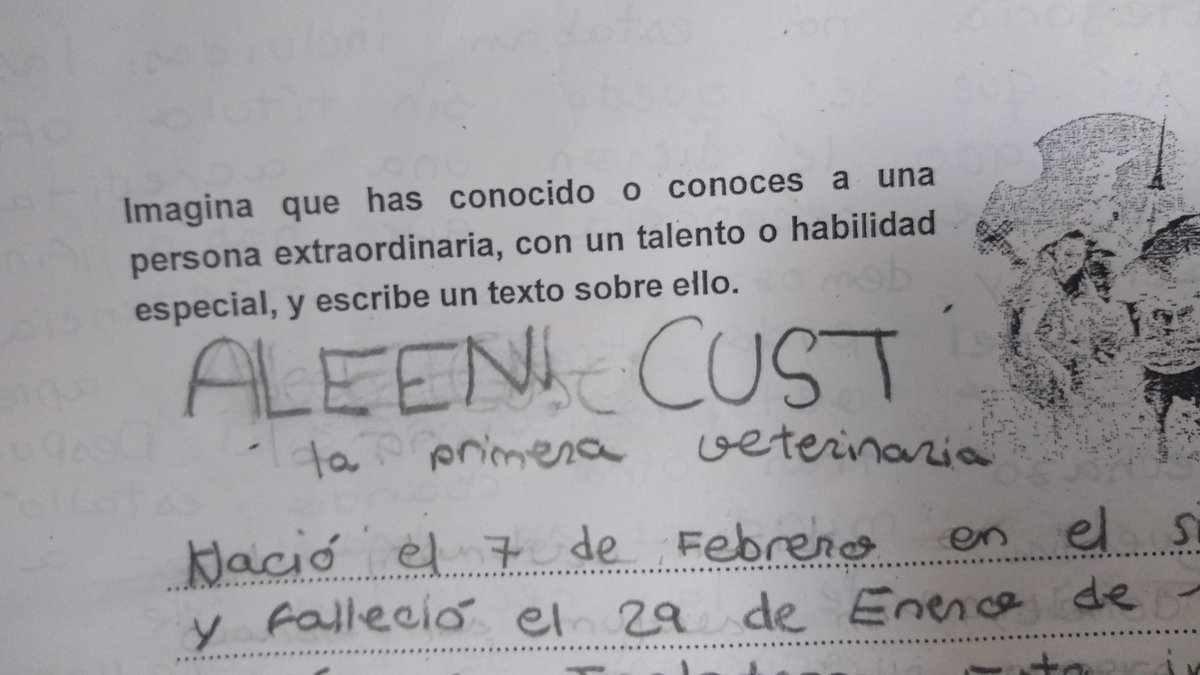 Imagina que has conocido o conoces a una
persona extraordinaria, con un talento o habilidad
especial, y escribe un texto sobre ello.
ALEEN CUST
la primera veterinaria
Nació el 7 de Febrero en el
y Falleció el 29 de Enero de